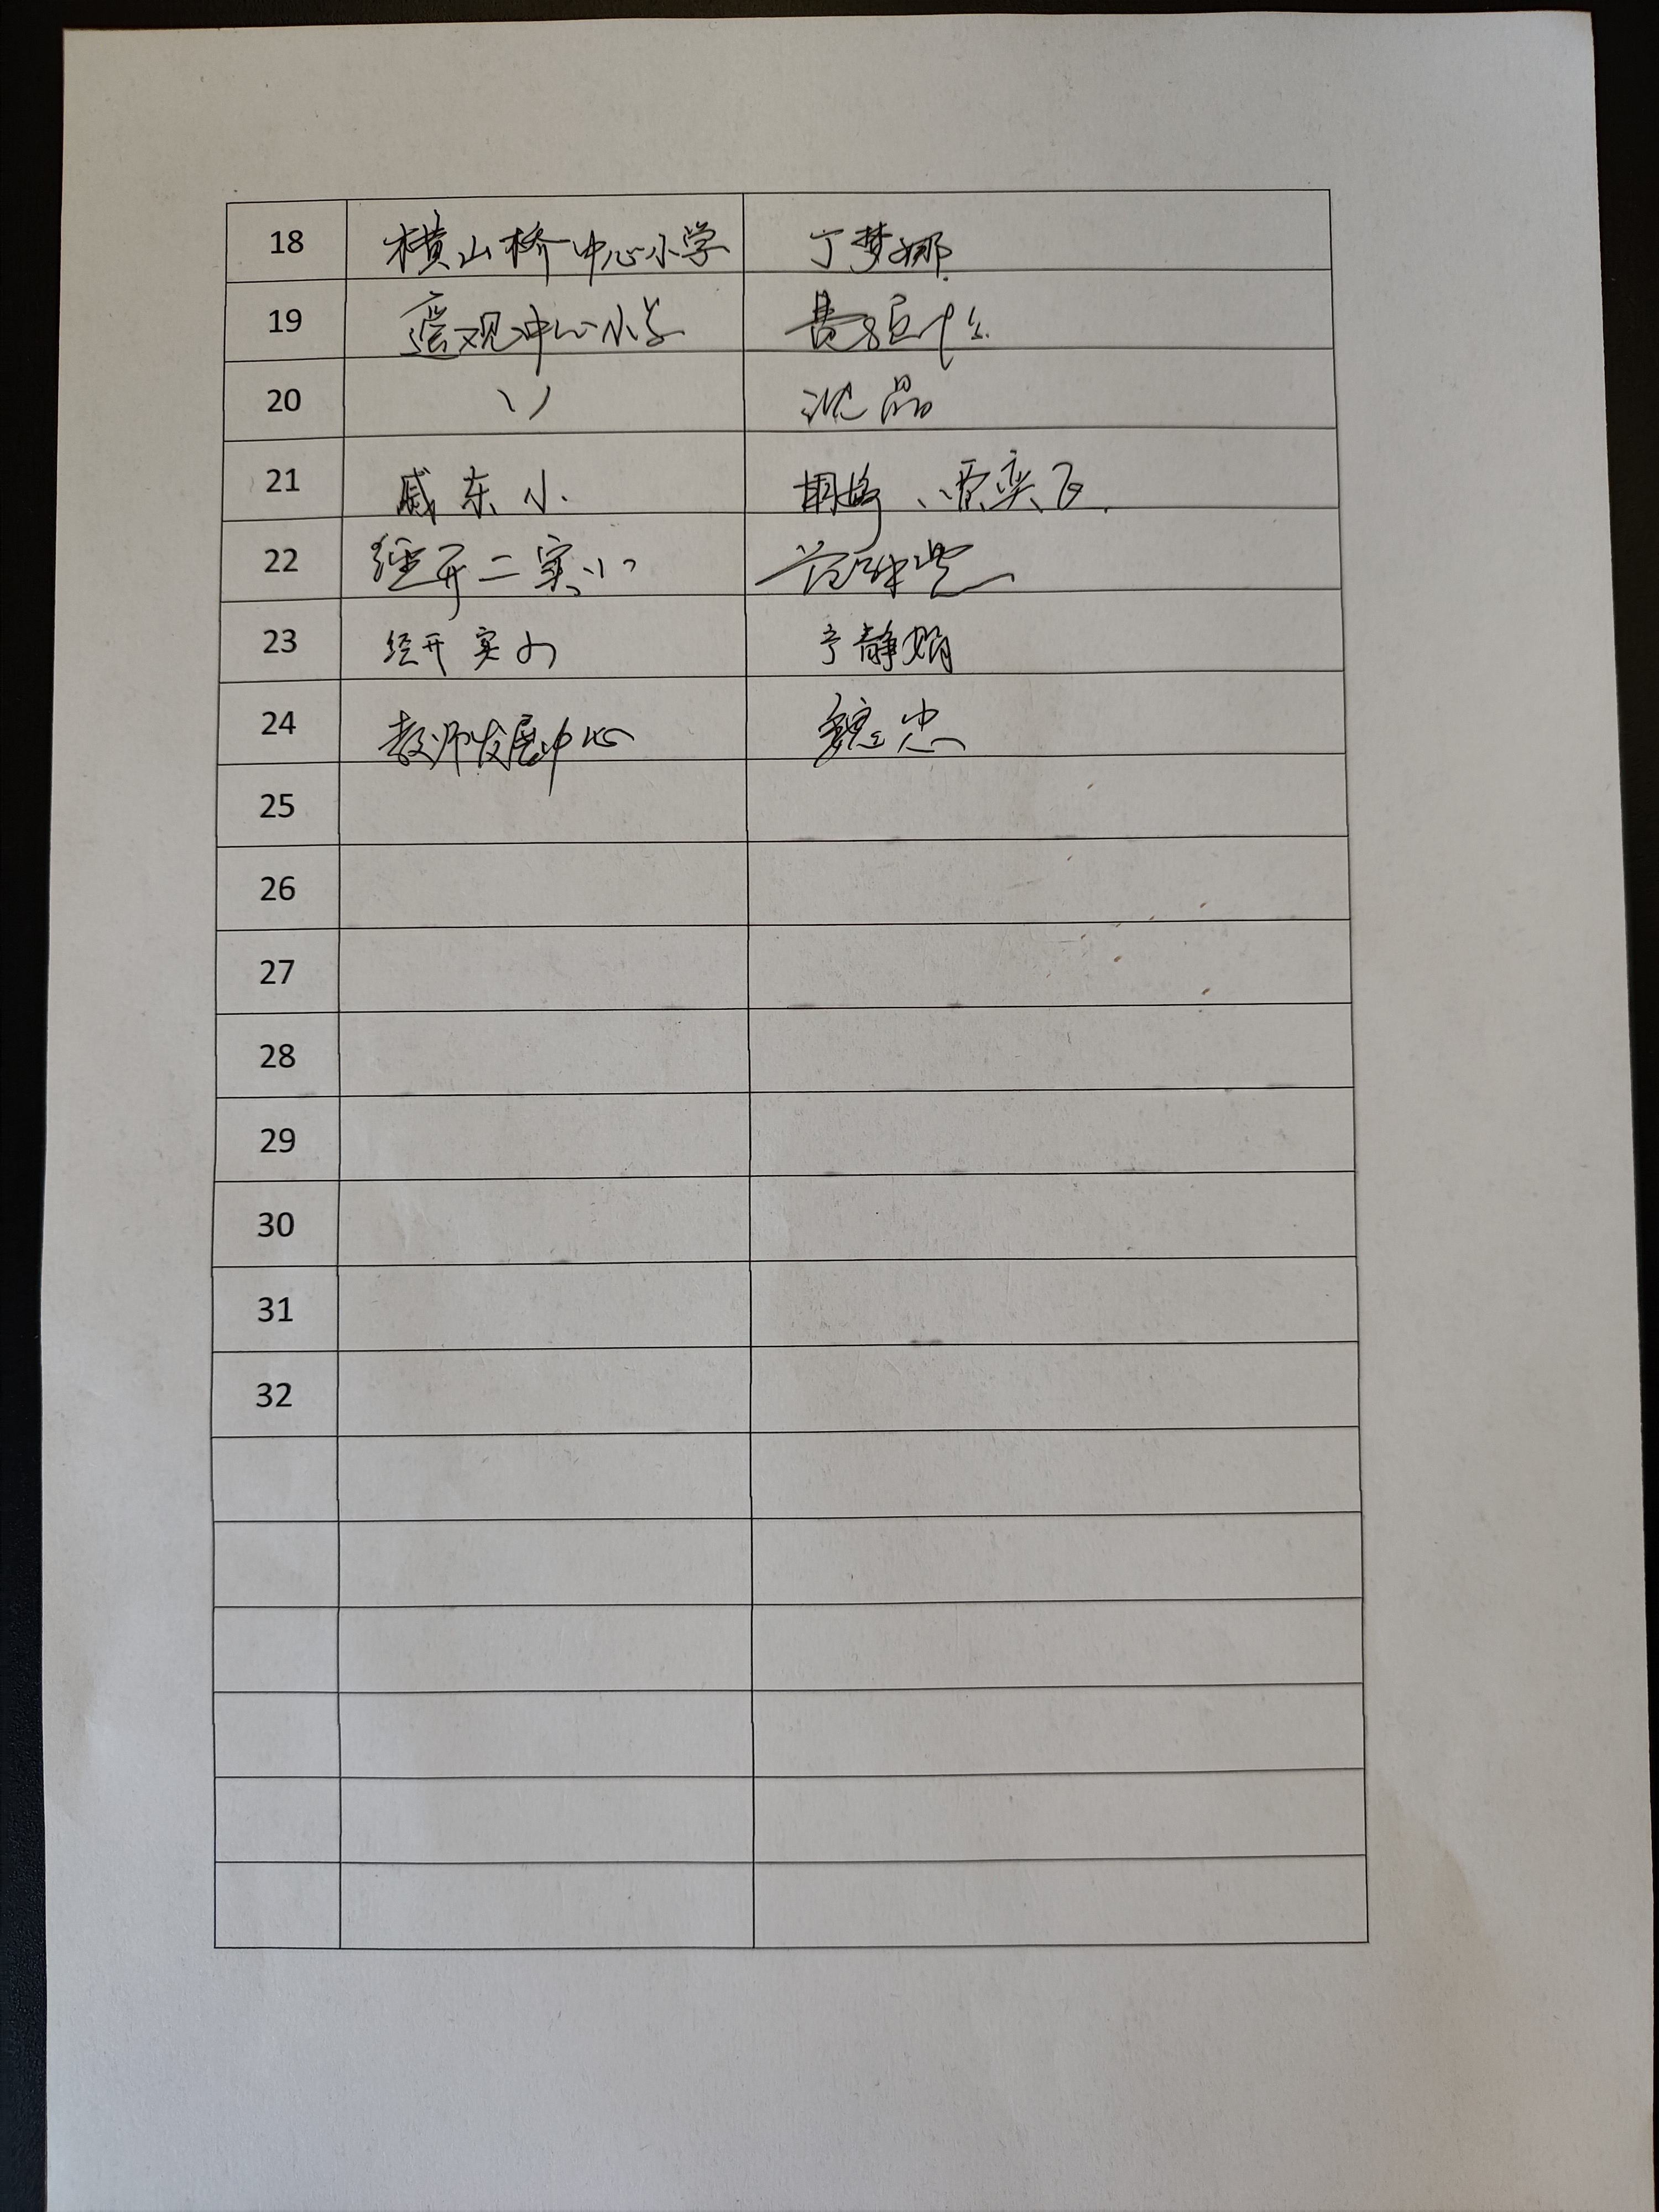 18 横山桥中心小学 丁梦娜
19 遥观中心小学 费
20 〃 沈晶
21 戚东小 胡 、贾奕飞
22 经开二实小 范
23 经开实小 静娟
24 教师发展中心 魏忠
25
26
27
28
29
30
31
32